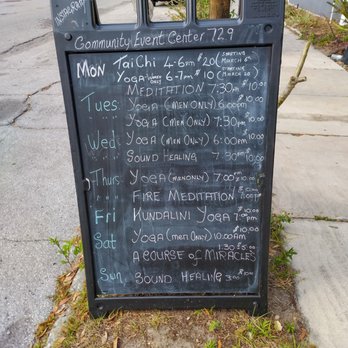 INSTAGRAM
Community Event Center 729
Mon Tai Chi 4-6pm $20 STARTING MARCH 6th
Yoga 6-7pm $10 STARTING MARCH 20
Meditation 7:30pm $10.00
Tues Yoga (Men Only) 6:00pm $10.00
Yoga (Men Only) 7:30pm $10.00
Wed Yoga (Men Only) 6:00pm $10.00
Sound Healing 7:30pm $10.00
Thurs Yoga (Men Only) 7:00pm $10.00
Fire Meditation
Fri Kundalini Yoga 7:00pm $10.00
Sat Yoga (Men Only) 10:00am $10.00
A Course of Miracles 1:30 $5.00
Sun Sound Healing 3:00pm $10.00